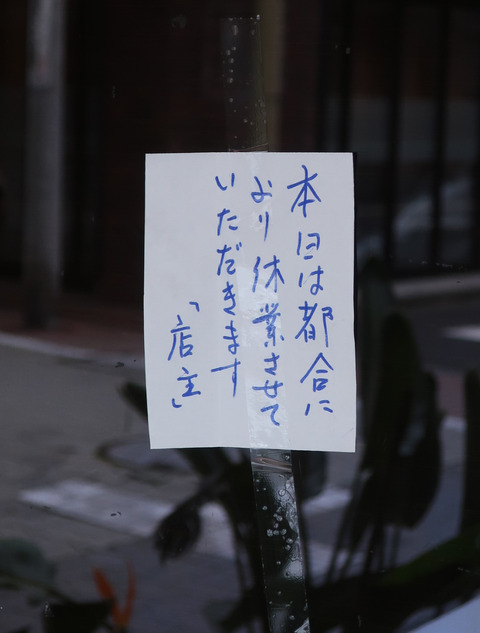 本日は都合に
より休業させて
いただきます
「店主」